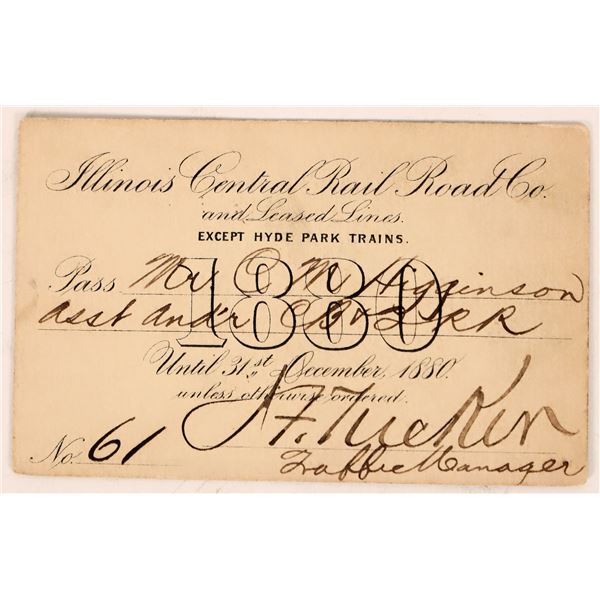 Illinois Central Rail Road Co.
and Leased Lines.
EXCEPT HYDE PARK TRAINS.
1880
Pass Mr C M Higginson
asst Audr CB & QRR
Until 31st December, 1880.
unless otherwise ordered.
J F Tucker
No. 61
Traffic Manager